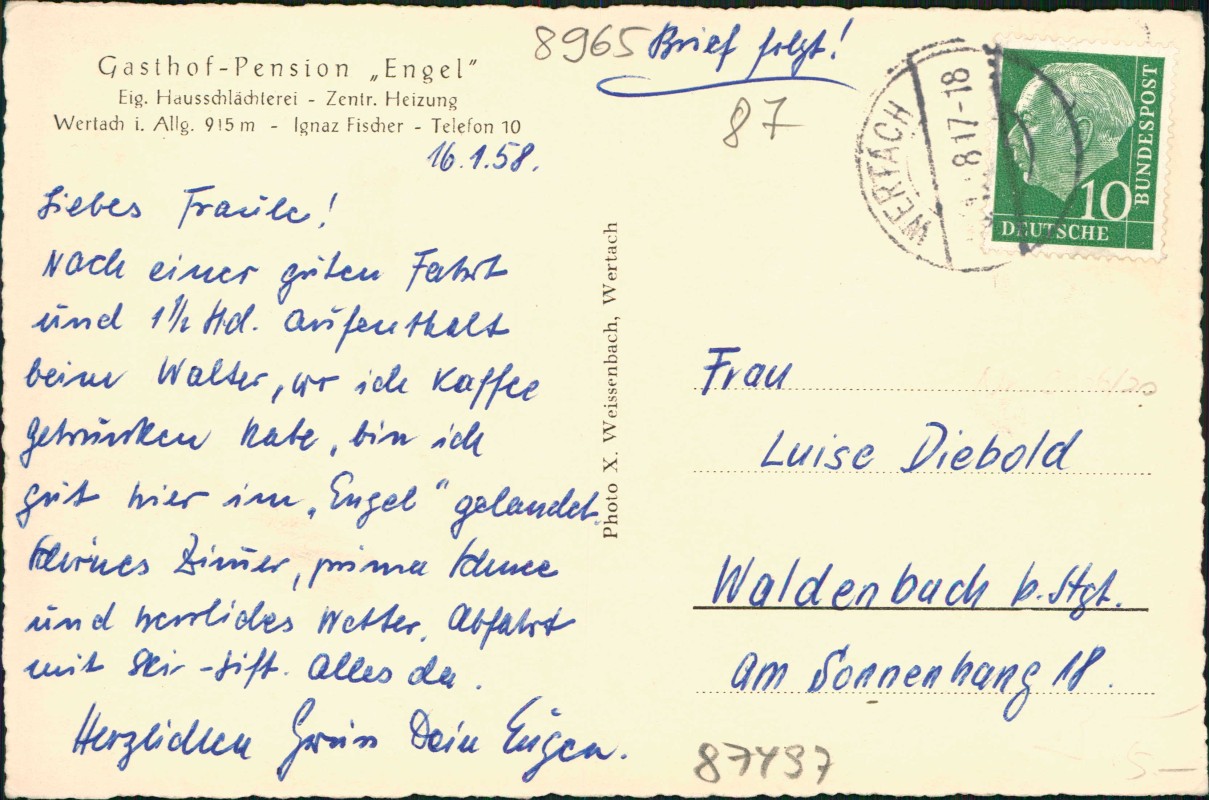 Gasthof-Pension „Engel"
Eig. Hausschlächterei - Zentr. Heizung
Wertach i. Allg. 915 m - Ignaz Fischer - Telefon 10
16.1.58.
Liebes Fraule!
Nach einer guten Fahrt
und 1½ Std. Aufenthalt
beim Walter, wo ich Kaffee
getrunken habe, bin ich
gut hier im „Engel" gelandet.
Zimmer, prima
und herrliches Wetter. Abfahrt
mit Ski-Lift. Alles da.
Herzlichen Gruss Dein Eugen.
8965
Brief folgt!
87
WERTACH
817-18
10
DEUTSCHE
BUNDESPOST
Photo X. Weissenbach, Wertach
Frau
Luise Diebold
Waldenbach b. Stgt.
Am Sonnenhang 18.
87497
5-